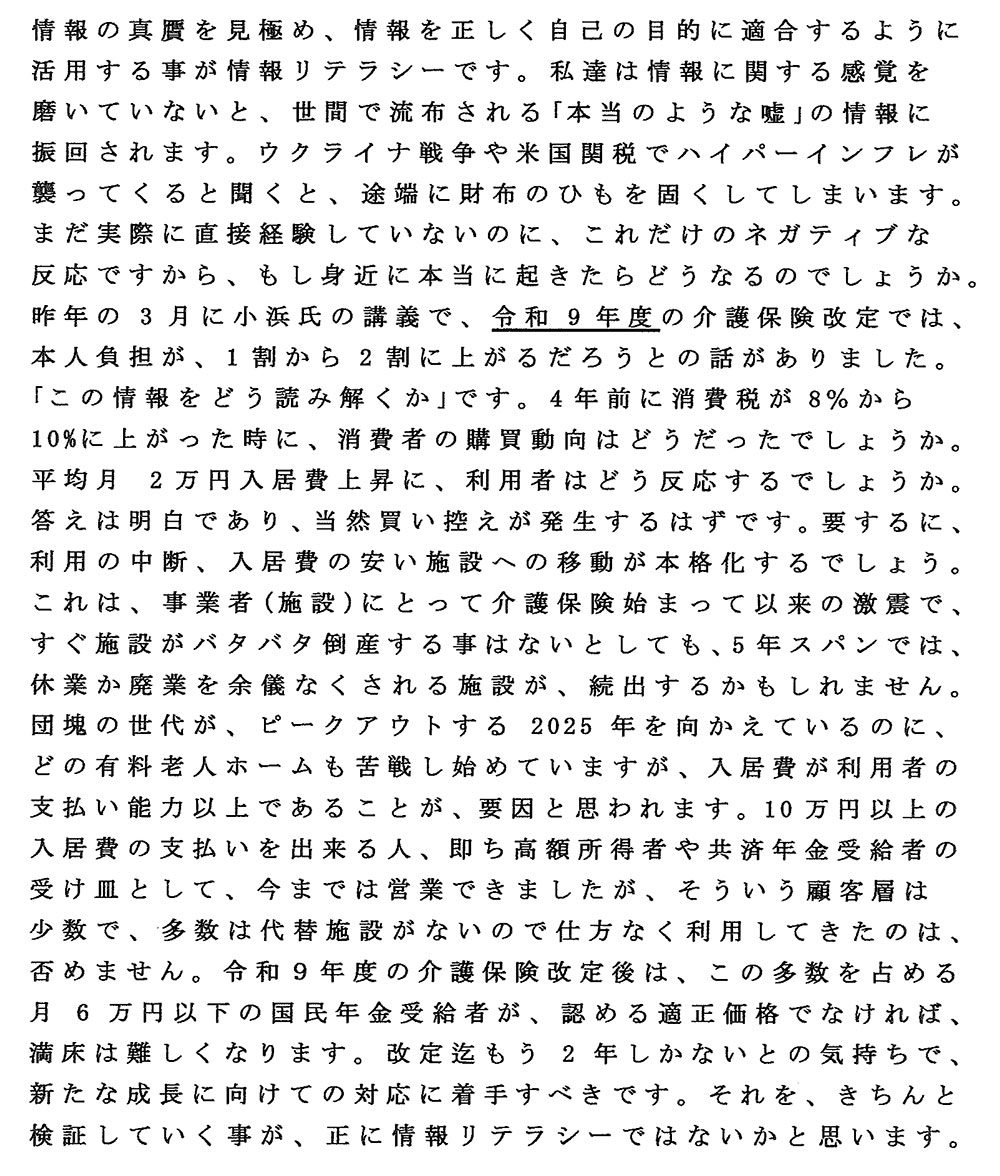 情報の真贋を見極め、情報を正しく自己の目的に適合するように
活用する事が情報リテラシーです。私達は情報に関する感覚を
磨いていないと、世間で流布される｢本当のような嘘｣の情報に
振回されます。ウクライナ戦争や米国関税でハイパーインフレが
襲ってくると聞くと、途端に財布のひもを固くしてしまいます。
まだ実際に直接経験していないのに、これだけのネガティブな
反応ですから、もし身近に本当に起きたらどうなるのでしょうか。
昨年の 3 月に小浜氏の講義で、令和 9 年度の介護保険改定では、
本人負担が、1 割から 2 割に上がるだろうとの話がありました。
｢この情報をどう読み解くか｣です。4 年前に消費税が 8%から
10%に上がった時に、消費者の購買動向はどうだったでしょうか。
平均月 2 万円入居費上昇に、利用者はどう反応するでしょうか。
答えは明白であり、当然買い控えが発生するはずです。要するに、
利用の中断、入居費の安い施設への移動が本格化するでしょう。
これは、事業者(施設)にとって介護保険始まって以来の激震で、
すぐ施設がバタバタ倒産する事はないとしても、5 年スパンでは、
休業か廃業を余儀なくされる施設が、続出するかもしれません。
団塊の世代が、ピークアウトする 2025 年を向かえているのに、
どの有料老人ホームも苦戦し始めていますが、入居費が利用者の
支払い能力以上であることが、要因と思われます。10 万円以上の
入居費の支払いを出来る人、即ち高額所得者や共済年金受給者の
受け皿として、今までは営業できましたが、そういう顧客層は
少数で、多数は代替施設がないので仕方なく利用してきたのは、
否めません。令和 9 年度の介護保険改定後は、この多数を占める
月 6 万円以下の国民年金受給者が、認める適正価格でなければ、
満床は難しくなります。改定迄もう 2 年しかないとの気持ちで、
新たな成長に向けての対応に着手すべきです。それを、きちんと
検証していく事が、正に情報リテラシーではないかと思います。